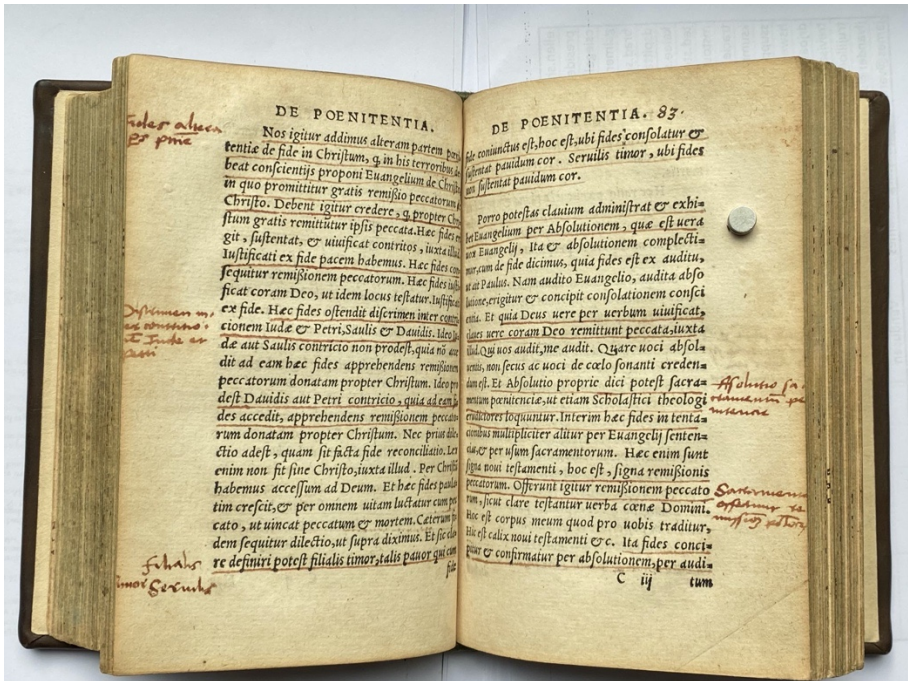 DE POENITENTIA.
Fides altera
ps pnie
Nos igitur addimus alteram partem poeni
tentiæ de fide in Christum, q̃ in his terroribus de
beat conscientijs proponi Euangelium de Christo
in quo promittitur gratis remißio peccatorum
Christo. Debent igitur credere, q̃ propter Chri
stum gratis remittutur ipsis peccata. Hæc fides eri
git, sustentat, & uiuificat contritos, iuxta illud
Iustificati ex fide pacem habemus. Hæc fides con
sequitur remißionem peccatorum. Hæc fides iusti
ficat coram Deo, ut idem locus testatur. Iustificati
ex fide. Hæc fides ostendit discrimen inter contri
cionem Iudæ & Petri, Saulis & Dauidis. Ideo Iu
dæ aut Saulis contricio non prodest, quia nõ acce
dit ad eam hæc fides apprehendens remißionem
peccatorum donatam propter Christum. Ideo pro
dest Dauidis aut Petri contricio, quia ad eam fi
des accedit, apprehendens remißionem peccato-
rum donatam propter Christum. Nec prius dile-
ctio adest, quam sit facta fide reconciliatio. Lex
enim non fit sine Christo, iuxta illud. Per Christum
habemus accessum ad Deum. Et hæc fides paula
tim crescit, & per omnem uitam luctatur cum pec
cato, ut uincat peccatum & mortem. Cæterum fi
dem sequitur dilectio, ut supra diximus. Et sic cla
re definiri potest filialis timor, talis pauor qui cum
fide
Discrimen in
Iude et
Petri
filialis
timor Servilis
DE POENITENTIA. 83.
fide coniunctus est, hoc est, ubi fides consolatur &
sustentat pauidum cor. Seruilis timor, ubi fides
non sustentat pauidum cor.
Porro potestas clauium administrat & exhi=
bet Euangelium per Absolutionem, quæ est uera
uox Euangelij, Ita & absolutionem complecti=
mur, cum de fide dicimus, quia fides est ex auditu,
ut ait Paulus. Nam audito Euangelio, audita abso
lutione, erigitur & concipit consolationem consci
entia. Et quia Deus uere per uerbum uiuificat,
claues uere coram Deo remittunt peccata, iuxta
illud. Qui uos audit, me audit. Quare uoci absol=
uentis, non secus ac uoci de cœlo sonanti creden=
dum est. Et Absolutio proprie dici potest sacra=
mentum pœnitenciæ, ut etiam Scholastici theologi
eruditiores loquuntur. Interim hæc fides in tenta=
cionibus multipliciter alitur per Euangelij senten=
cias, & per usum sacramentorum. Hæc enim sunt
signa noui testamenti, hoc est, signa remißionis
peccatorum. Offerunt igitur remißionem peccato
rum, sicut clare testantur uerba cœnæ Domini.
Hoc est corpus meum quod pro uobis traditur,
Hic est calix noui testamenti &c. Ita fides conci=
pitur & confirmatur per absolutionem, per audi=
C iij tum
Absolutio sa-
cramentum pe
nitencie
Sacramenta
offerunt re
missio